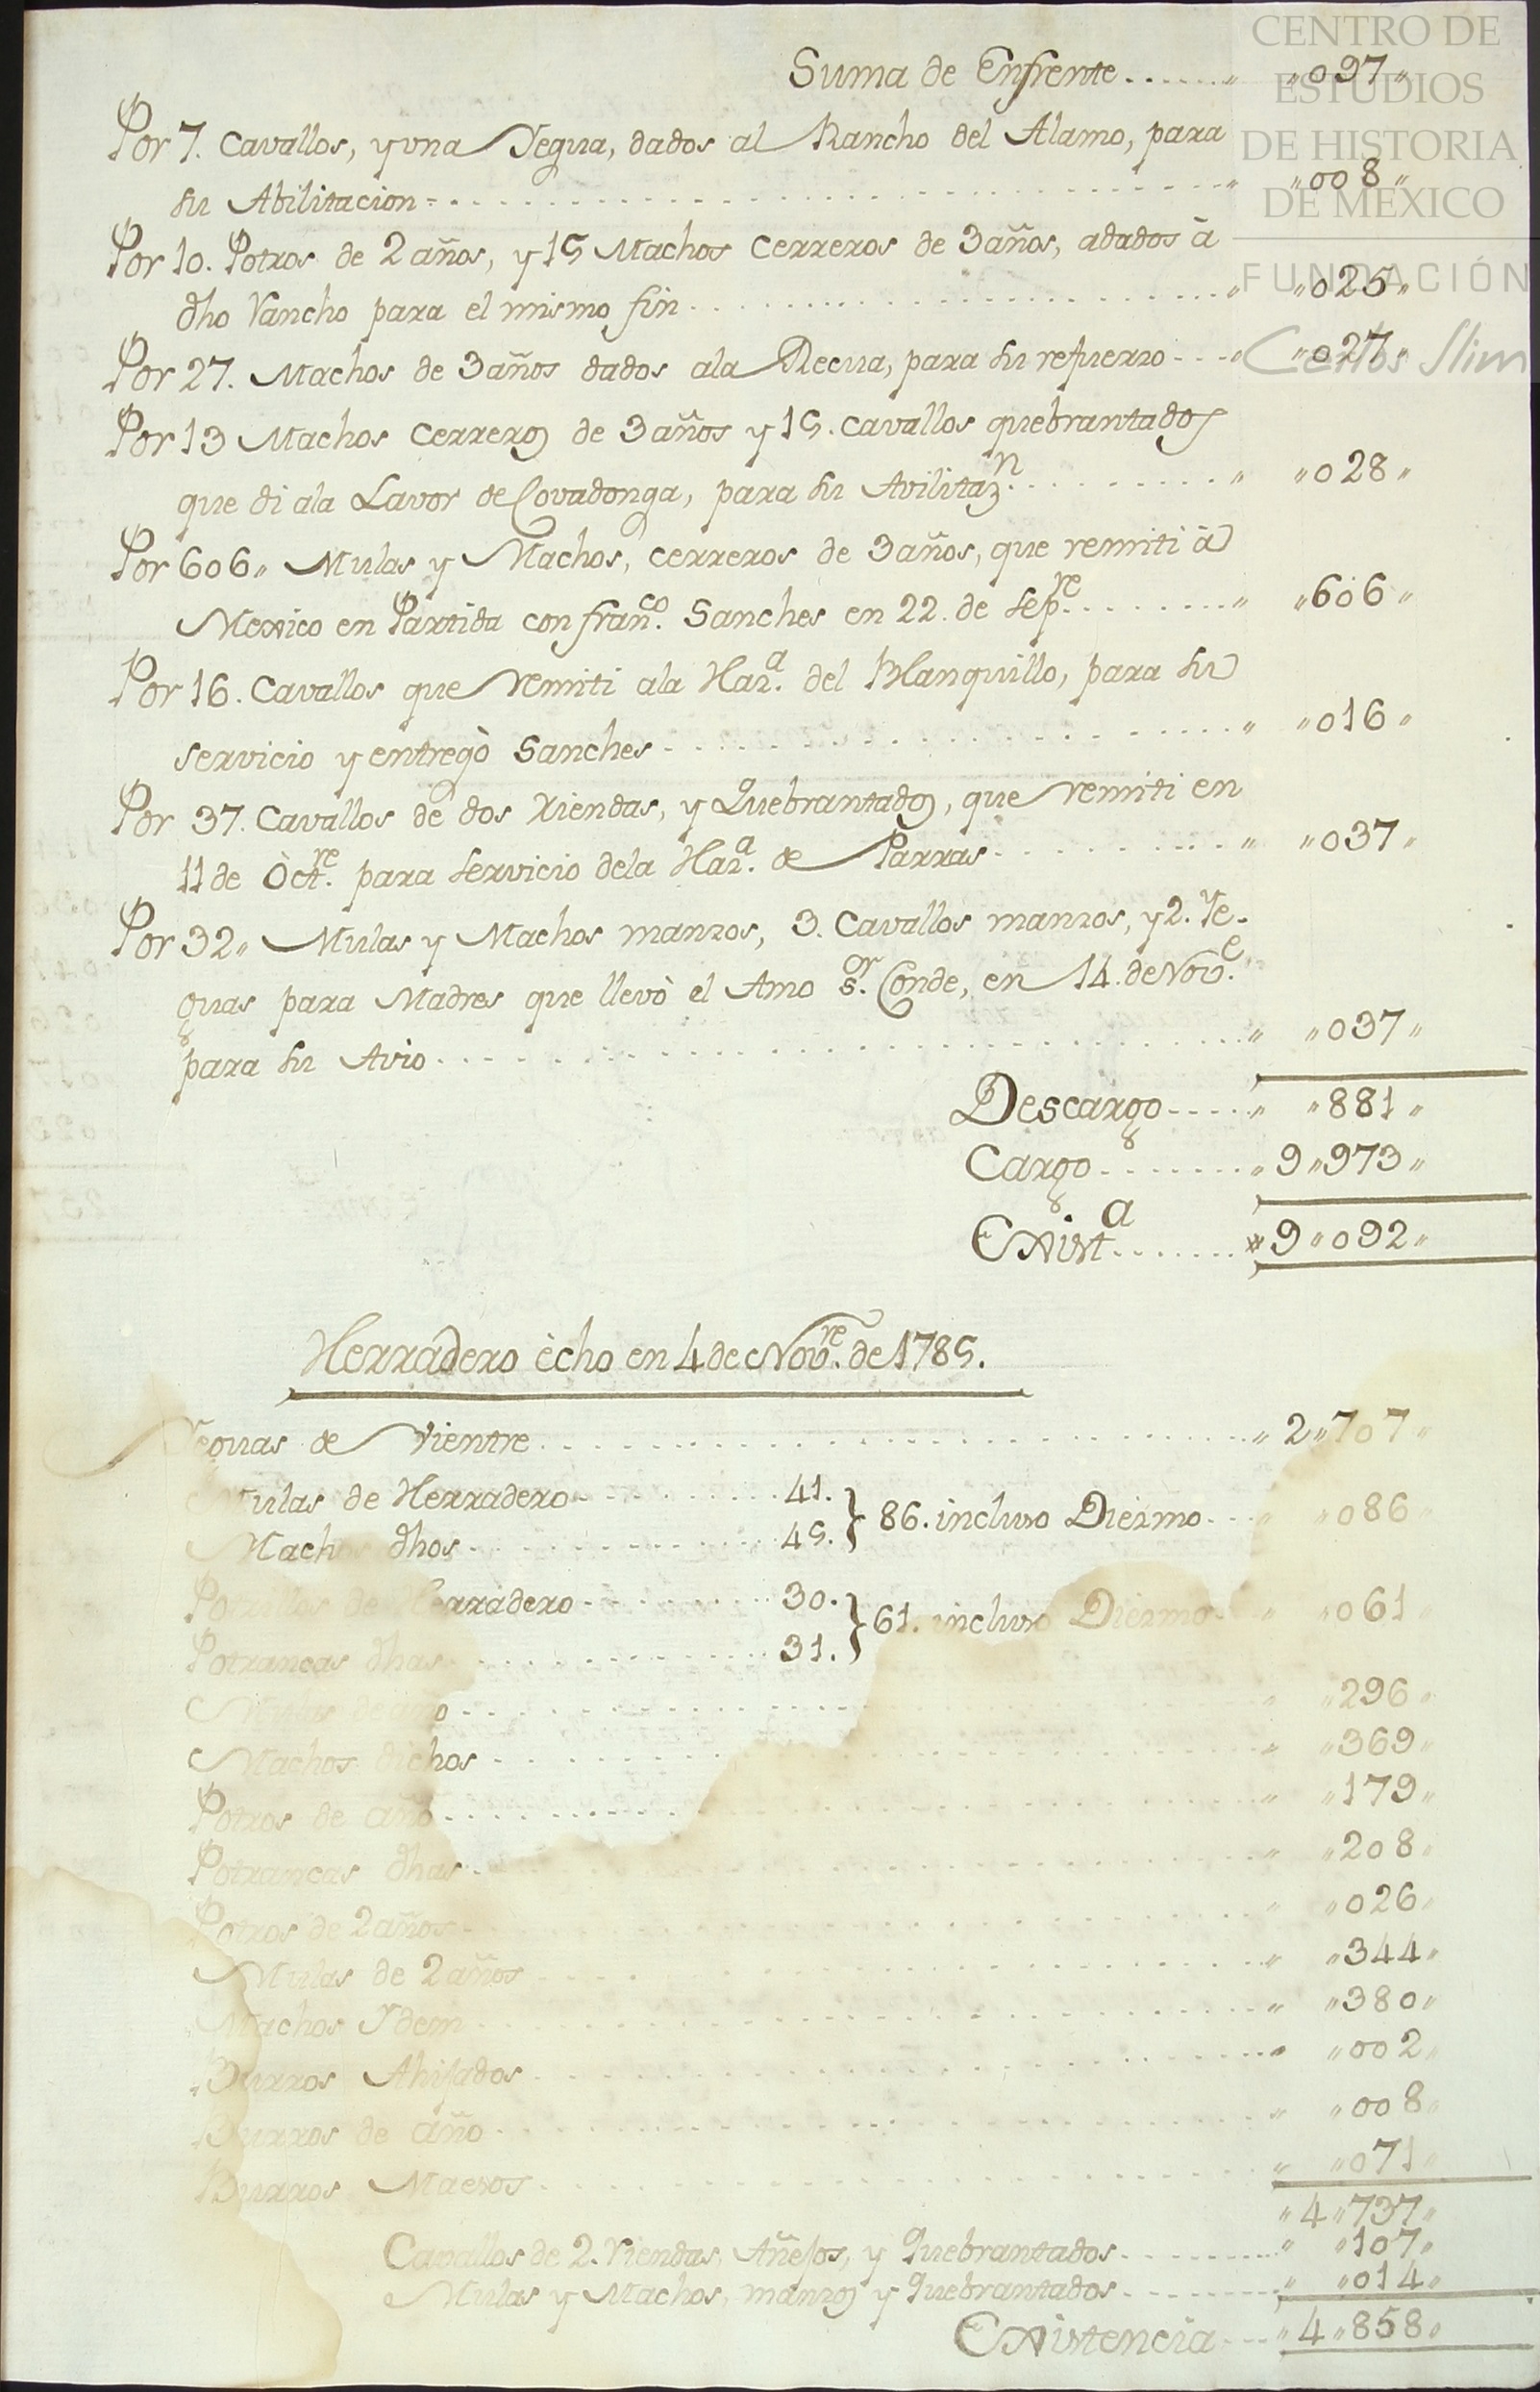 CENTRO DE
ESTUDIOS
DE HISTORIA
DE MÉXICO
FUNDACIÓN
Carlos Slim
Suma de Enfrente...... " "097"
Por 7. Cavallos, y vna Yegua, dados al Rancho del Alamo, para
su Abilitacion " "008"
Por 10. Potros de 2 años, y 15 Machos Cerreros de 3 años, adados à
dho Rancho para el mismo fin " "025"
Por 27. Machos de 3 años dados ala Recua, para su refuerzo " "027"
Por 13 Machos Cerreros de 3 años y 15. Cavallos quebrantados
que di ala Lavor de Covadonga, para su Avilitazn. " "028"
Por 606" Mulas y Machos, cerreros de 3 años, que remiti à
Mexico en Partida con Franco. Sanches en 22. de Sepre. " "606"
Por 16. Cavallos que remiti ala Haza. del Blanquillo, para su
servicio y entregò Sanches " "016"
Por 37. Cavallos de dos riendas, y Quebrantados, que remiti en
11 de Òctre. para servicio dela Haza. de Parras " "037"
Por 32" Mulas y Machos manzos, 3. Cavallos manzos, y 2. Ye-
guas para Madres que llevò el Amo Sor. Conde, en 14. de Nove.
para su Avio " "037"
Descargo " "881"
Cargo " 9"973"
Exista " 9"092"
Herradero ècho en 4 de Novre. de 1785.
Yeguas de Vientre " 2"707"
Mulas de Herradero 41. } 86. incluso Diezmo " "086"
Machos dhos 45.
Potrillos de Herradero 30. } 61. incluso Diezmo " "061"
Potrancas dhas 31.
Mulas de año " "296"
Machos dichos " "369"
Potros de año " "179"
Potrancas dhas " "208"
Potros de 2 años " "026"
Mulas de 2 años " "344"
Machos Ydem " "380"
Burros Ahijados " "002"
Burros de año " "008"
Burros Maesos " "071"
" 4"737"
Cavallos de 2. Riendas, Añejos, y Quebrantados " "107"
Mulas y Machos, manzos y Quebrantados " "014"
Existencia " 4"858"